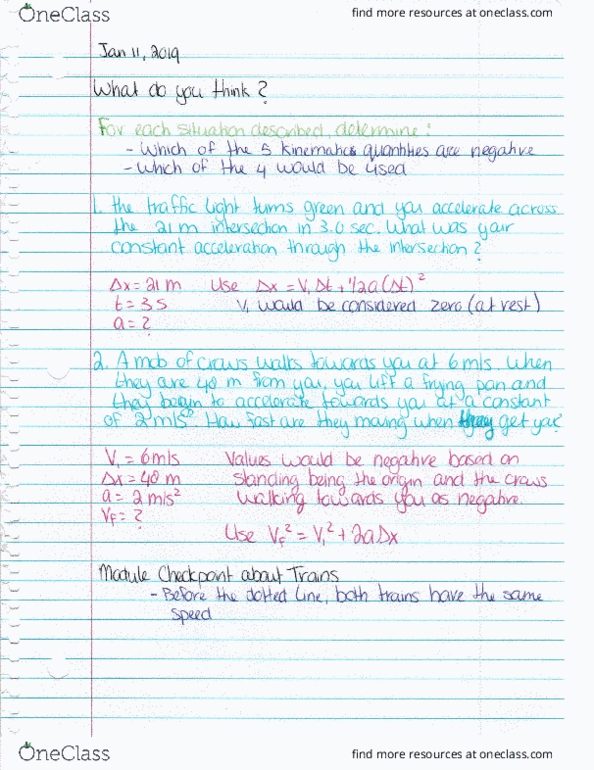 OneClass
find more resources at oneclass.com
Jan 11, 2019
What do you think?
For each situation described, determine:
- Which of the 5 kinematics quantities are negative
- Which of the 4 would be used
1. The traffic light turns green and you accelerate across
the 21 m intersection in 3.0 sec. What was your
constant acceleration through the intersection?
Δx = 21 m Use Δx = V₁Δt + 1/2a(Δt)²
t = 3 s V₁ would be considered zero (at rest)
a = ?
2. A mob of craws walks towards you at 6 m/s. When
they are 48 m from you, you lift a frying pan and
they begin to accelerate towards you at a constant
of 2 m/s². How fast are they moving when they get you?
V₁ = 6 m/s Values would be negative based on
Δx = 48 m standing being the origin and the craws
a = 2 m/s² walking towards you as negative.
Vf = ?
Use Vf² = V₁² + 2aΔx
Module Checkpoint about Trains
- Before the dotted line, both trains have the same
speed
OneClass
find more resources at oneclass.com